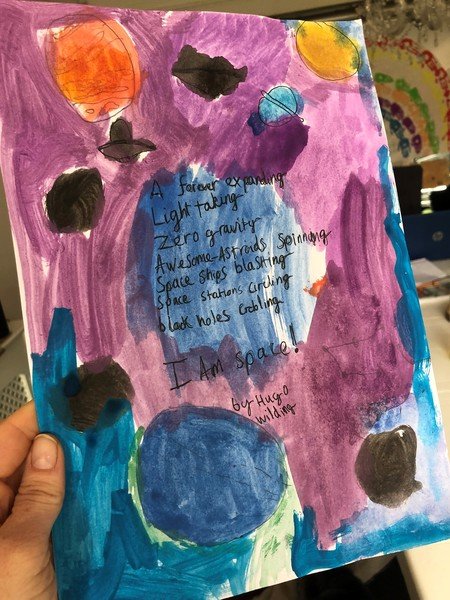 A forever expanding
Light taking
Zero gravity
Awesome Astroids spinning
Space ships blasting
Space stations circling
black holes gobling
I Am space!
by Hugo
Wilding